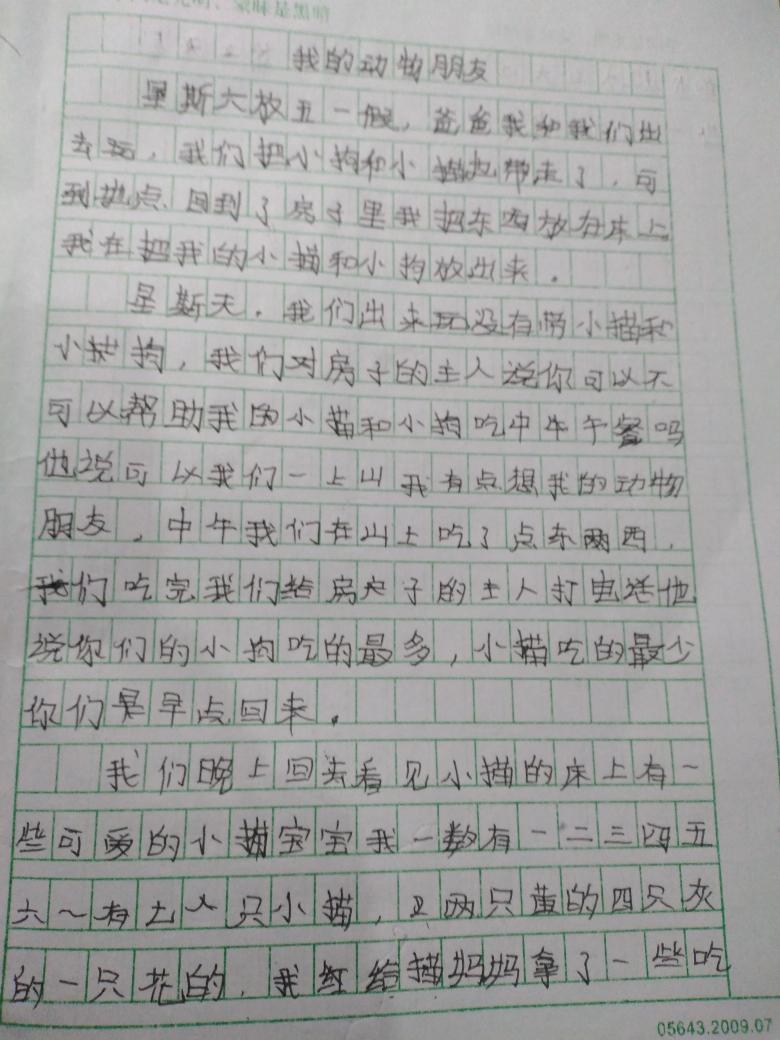 蒙昧是黑暗
我的动物朋友
星斯六放五一假，爸爸我和我们出
去玩，我们把小狗和小猫也带走了，可
到地点，回到了房子里我把东西放在床上
我在把我的小猫和小狗放出来。
星斯天，我们出来玩没有带小猫和
小狗，我们对房子的主人说你可以不
可以帮助我的小猫和小狗吃中午午餐吗
他说可以我们一上山我有点想我的动物
朋友，中午我们在山上吃了点东西，
我们吃完我们给房子的主人打电话他
说你们的小狗吃的最多，小猫吃的最少
你们是早点回来。
我们晚上回去看见小猫的床上有一
些可爱的小猫宝宝我一数有一二三四五
六一有七个只小猫，又两只黄的四只灰
的一只花的，我给猫妈妈拿了一些吃
05643.2009.07